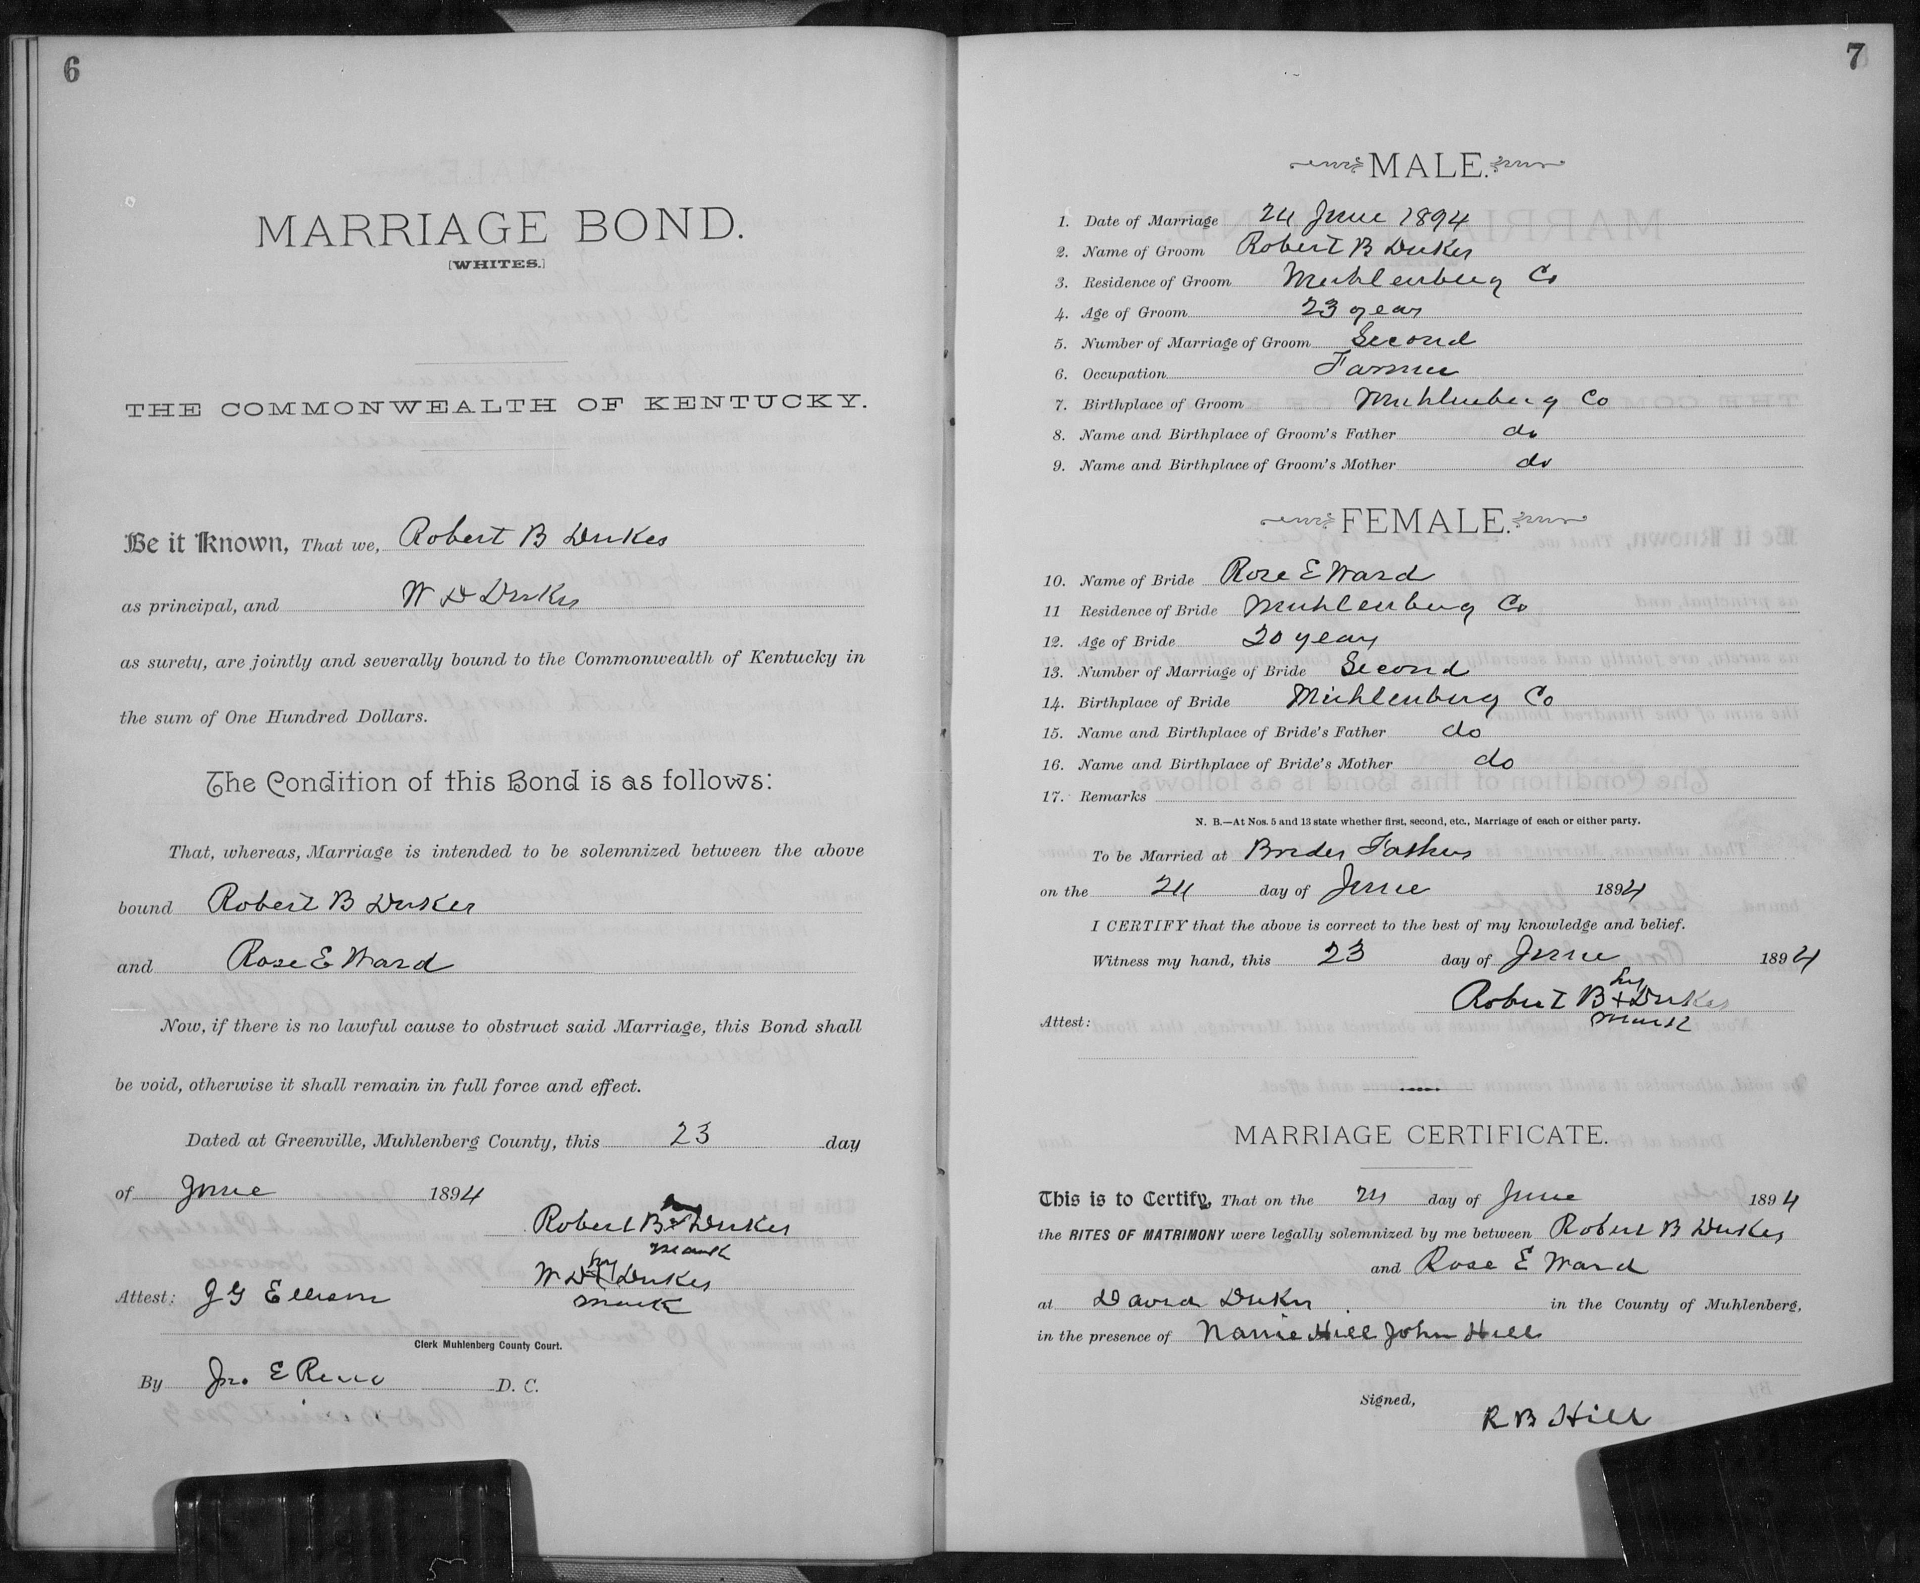 6
MARRIAGE BOND.
[WHITES.]
THE COMMONWEALTH OF KENTUCKY.
Be it Known, That we, Robert B Dukes
as principal, and W D Dukes
as surety, are jointly and severally bound to the Commonwealth of Kentucky in
the sum of One Hundred Dollars.
The Condition of this Bond is as follows:
That, whereas, Marriage is intended to be solemnized between the above
bound Robert B Dukes
and Rose E Ward
Now, if there is no lawful cause to obstruct said Marriage, this Bond shall
be void, otherwise it shall remain in full force and effect.
Dated at Greenville, Muhlenberg County, this 23 day
of June 1894
his
Robert B + Dukes
mark
his
W D + Dukes
mark
Attest: J G Ellison
Clerk Muhlenberg County Court.
By Jno. E Reno D. C.
7
MALE.
1. Date of Marriage 24 June 1894
2. Name of Groom Robert B Dukes
3. Residence of Groom Muhlenburg Co
4. Age of Groom 23 years
5. Number of Marriage of Groom Second
6. Occupation Farmer
7. Birthplace of Groom Muhlenberg Co
8. Name and Birthplace of Groom's Father do
9. Name and Birthplace of Groom's Mother do
FEMALE.
10. Name of Bride Rose E Ward
11 Residence of Bride Muhlenburg Co
12. Age of Bride 20 years
13. Number of Marriage of Bride Second
14. Birthplace of Bride Muhlenburg Co
15. Name and Birthplace of Bride's Father do
16. Name and Birthplace of Bride's Mother do
17. Remarks
N. B.—At Nos. 5 and 13 state whether first, second, etc., Marriage of each or either party.
To be Married at Brides Fathers
on the 24 day of June 1894
I CERTIFY that the above is correct to the best of my knowledge and belief.
Witness my hand, this 23 day of June 1894
his
Robert B + Dukes
mark
Attest:
MARRIAGE CERTIFICATE.
This is to Certify, That on the 24 day of June 1894
the RITES OF MATRIMONY were legally solemnized by me between Robert B Dukes
and Rose E Ward
at David Dukes in the County of Muhlenberg,
in the presence of Nannie Hill John Hill
Signed,
R B Hill